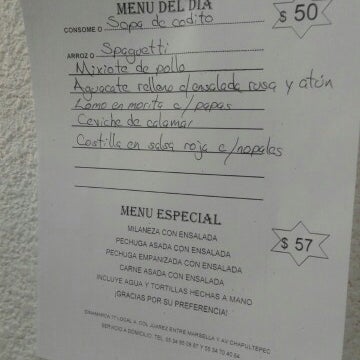 MENU DEL DIA
CONSOME O Sopa de codito
$ 50
ARROZ O Spaguetti
Mixiote de pollo
Aguacate relleno c/ensalada rusa y atún
Lomo en morita c/papas
Ceviche de calamar
Costilla en salsa roja c/nopales
MENU ESPECIAL
MILANEZA CON ENSALADA
PECHUGA ASADA CON ENSALADA
$ 57
PECHUGA EMPANIZADA CON ENSALADA
CARNE ASADA CON ENSALADA
INCLUYE AGUA Y TORTILLAS HECHAS A MANO
¡GRACIAS POR SU PREFERENCIA!
DINAMARCA 77 LOCAL A COL JUAREZ ENTRE MARSELLA Y AV CHAPULTEPEC
SERVICIO A DOMICILIO: TEL.